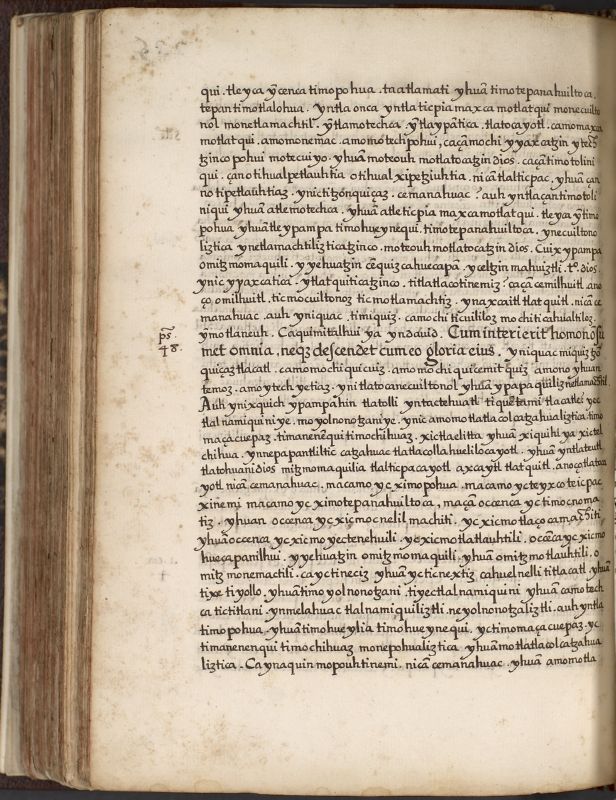 qui . tleyca yc̄enca timopohua . taatlamati yhuā timotepanahuiltoca .
tepantimotlalohua . yntla onca yntlaticpia maxca motlatqui monecuilto
nol monetlamachtil . yn̄tlamotechca yn̄tlaypātica . tlatocayotl . camomaxca
motlatqui . amomonem̄ac . amomotechpohui , caçāmochi yyaxcatzin ytech
tzinco pohui motecuiyo . yhuā moteouh motlatocatzin dios . caçātimotolini
qui . çanotihualpetlauhtia otihual xipetziuhtia . nicā tlalticpac , yhuā çan
notipetlauhtiaz . ynictitzonquiçaz . cemanahuac ? auh yntlaçantimotoli
niqui yhuā atlemotechca . yhuā atleticpia maxcamotlatqui . tleyca yn̄timo
pohua yhuātleypampa timohueynequi . timotepanahuiltoca . ynecuiltono
liztica ynetlamachtiliztica tzinco . moteouh motlatocatzin dios . Cuix ypampa
omitzm̄omaquili . yyehuatzin cēquizcahuecapā yceltzin mahuiztli . tº. dios .
ynic yyaxcatica . ytlatquiticatzinco . titlatlacotinemiz ? caçacemilhuitl ano
ço , omilhuitl , ticmocuiltonoz ticmotlamachtiz . ynaxcaitl tlatquitl . nicā ce
manahuac . auh yniquac , timiquiz . camochi ticuililoz mochi ticahualtiloz .
yn̄motlaneuh . Caquimitalhui ya yndauid . Cum interierit homo nō su
p̄s. 48.
met omnia , neqz descendet cum eo gloria eius . yniquac miquiz yn̄o
quiçaz tlacatl . camomochi quicuiz . amomochi quicemitquiz amono yhuan
temoz . amoytech yetiaz . ynitlatocanecuiltonol yhuā ypapaquiliz netlamachtil .
Auh ynixquich ypampahin tlatolli yntactehuatl tiquetami tlacatle : yec
tlalnamiquini ye . moyolnonotzani ye . ynic amomotlatlacolcatzahualiztica timo
maçacuepaz . timanenēqui timochihuaz . xictlaelitta yhuā xiquihiya xictel
chihua . ynnepapantliltic catzahuac tlatlacollahuelilocayotl . yhuā yntlateutl
tlatohuani dios mitzmomaquilia tlalticpacayotl axcayotl tlatquitl . anoço tlatoca
yotl nicā cemanahuac , macamo yc ximopohua . macamo ycteyxco teicpac
xinemi macamo yc ximotepanahuiltoca , maçā occenca yc timocnoma
tiz . yhuan occenca yc xicmocnelilmachiti . yc xicmotlaçocamachiti
yhuā occenca yc xicmo yectenehuili . yc xicmotlatlauhtili . occēca yc xicmo
hueçapanilhui . yyehuatzin omitzmomaquili , yhuā omitzmotlauhtili . o
mitzmonemactili . ca yc ticneciz yhuā yc ticnextiz cahuelnelli titlacatl yhuan
tixe tiyollo . yhuātimoyolnonotzani . tiyectlalnamiquini yhuā camo tech
ca tictitlani . ynmelahuac tlalnamiquiliztli . neyolnonotzaliztli . auh yntla
timopohua , yhuātimohueylia timohueynequi . yc timomaçacuepaz . yc
timanenenqui timochihuaz monepohualiztica yhuāmotlatlacolcatzahua
liztica . Ca ynaquin mopouhtinemi . nicā cemanahuac . yhuā amomotla